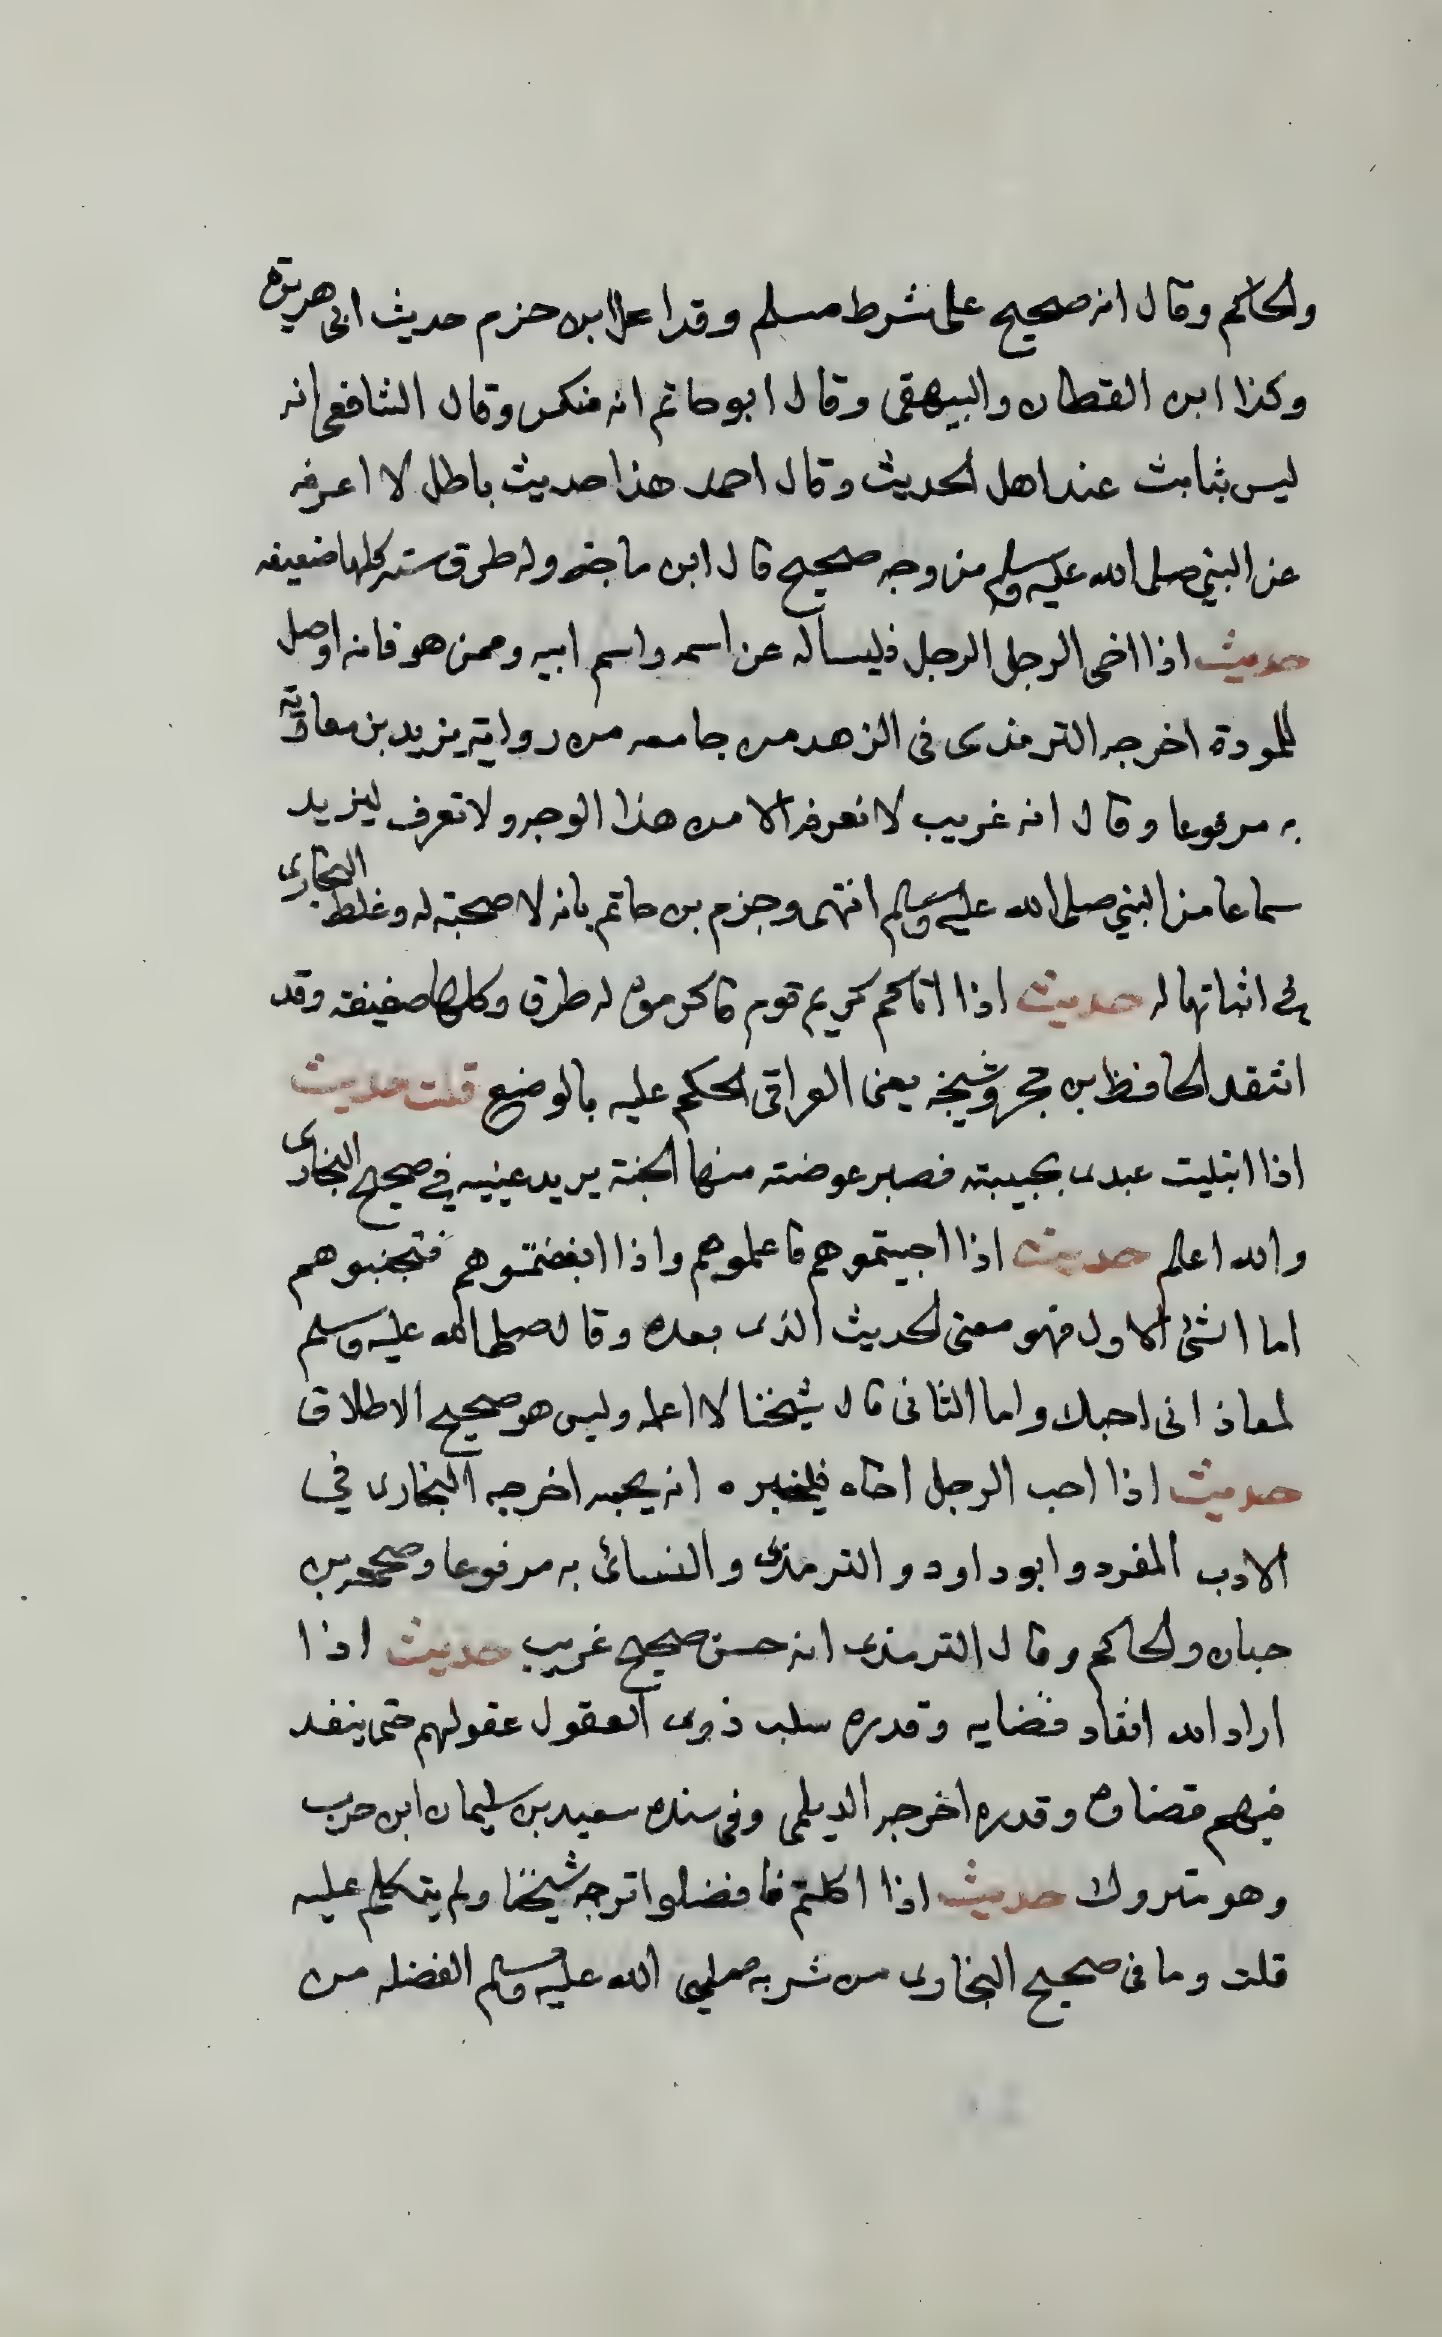 والحاكم وقال انه صحيح على شرط مسلم وقد اعلا ابن حزم حديث ابي هريرة
وكذا ابن القطان والبيهقى وقال ابو حاتم انه منكر وقال الشافعى انه
ليس بثابت عند اهل الحديث وقال احمد هذا حديث باطل لا اعرفه
عن النبي صلى الله عليه وسلم من وجه صحيح قال ابن ماجه وله طرق سته كلها ضعيفه
حديث اذا اخى الرجل الرجل فليساله عن اسمه واسم ابيه وممن هو فانه اوصل
للمودة اخرجه الترمذى فى الزهد من جامعه من رواية يزيد بن معاوية
به مرفوعا وقال انه غريب لا نعرفه الا من هذا الوجه ولا تعرف ليزيد
سماعا من النبي صلى الله عليه وسلم انتهى وجزم بن حاتم بانه لا صحبته له وغلط البخارى
فى اثباتها له حديث اذا اتاكم كريم قوم فاكرموه له طرق وكلها ضعيفة وقد
انتقد الحافظ بن حجر وشيخه يعنى العراقى الحكم عليه بالوضع قلت حديث
اذا ابتليت عبدى بحبيبته فصبر عوضته منها الجنة يريد عينيه في صحيح البخارى
والله اعلم حديث اذا احببتموهم فاعلموهم واذا ابغضتموهم فتجنبوهم
اما الشئ الاول فهو معنى الحديث الذى بعده وقال صلى الله عليه وسلم
لمعاذ انى احبك واما الثانى قال شيخنا لا اعلمه وليس هو صحيح الاطلاق
حديث اذا احب الرجل اخاه فليخبره انه يحبه اخرجه البخارى في
الادب المفرد وابو داود والترمذى والنسائى به مرفوعا وصححه بن
حبان والحاكم وقال الترمذى انه حسن صحيح غريب حديث اذا
اراد الله انفاد قضايه وقدره سلب ذوى العقول عقولهم حتى ينفد
فيهم قضاوه وقدره اخرجه الديلمى وفى سنده سعيد بن سليمان ابن حرب
وهو متروك حديث اذا اكلتم فافضلوا ترجه شيخنا ولم يتكلم عليه
قلت وما فى صحيح البخارى من شربه صلى الله عليه وسلم الفضله من